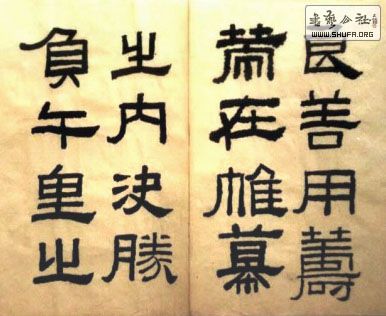 公社
WWW.SHUFA.ORG
良善用籌
策在帷幕
之内決勝
負千里之